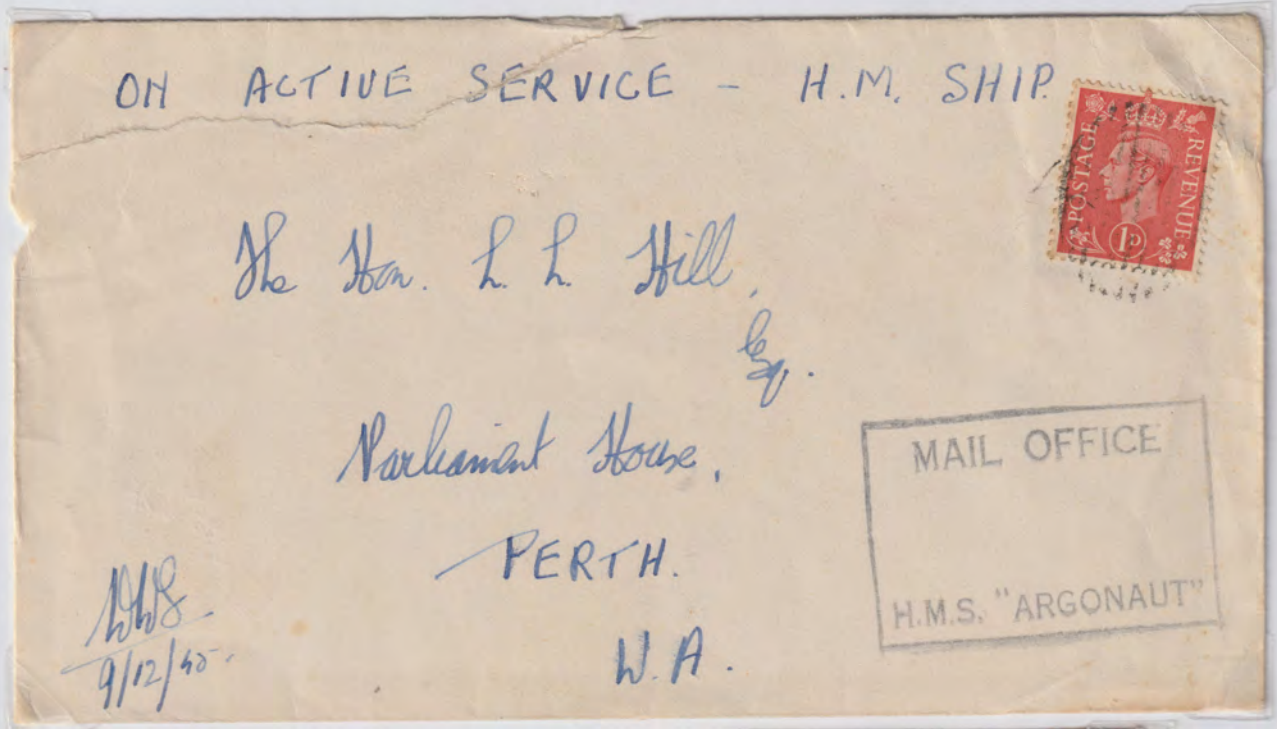 ON ACTIVE SERVICE - H.M. SHIP.
POSTAGE REVENUE
1D
The Hon. L. L. Hill,
Esq.
Parliament House,
PERTH.
W.A.
MAIL OFFICE
H.M.S. "ARGONAUT"
9/12/45.